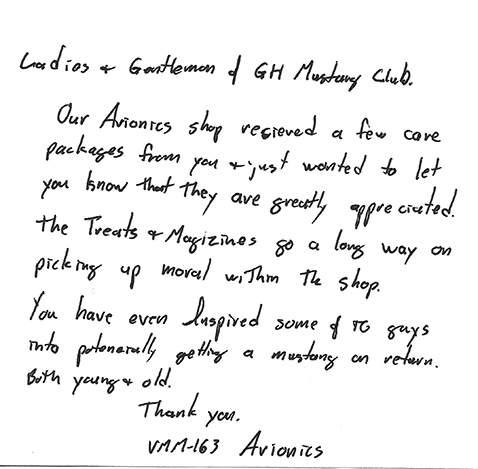 Ladies & Gentlemen of GH Mustang Club.
Our Avionics shop recieved a few care
packages from you & just wanted to let
you know that they are greatly appreciated.
The Treats & Magizines go a long way on
picking up moral within the shop.
You have even Inspired some of the guys
into potenerally getting a mustang on return.
Both young & old.
Thank you.
VMM-163 Avionics